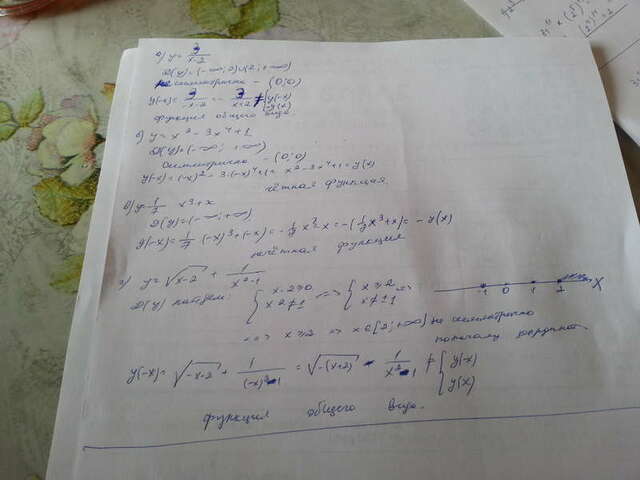 а) y = 3/(x-2)
D(y) = (-∞; 2)∪(2; +∞)
не симметрично - (0;0)
y(-x) = 3/(-x-2) = - 3/(x+2) ≠ { y(-x) -y(x)
функция общего вида.
б) y = x² - 3x⁴ + 1
D(y) = (-∞; +∞)
симметрично - (0;0)
y(-x) = (-x)² - 3·(-x)⁴ + 1 = x² - 3x⁴ + 1 = y(x)
чётная функция.
в) y = 1/2 x³ + x
D(y) = (-∞; +∞)
y(-x) = (-x)³ + (-x) = - x³ - x = -( x³ + x) = - y(x)
нечётная функция
г) y = √(x-2) + 1/(x²-1)
D(y) найдем: { x-2≥0 x²≠1 => { x≥2 x≠±1 =>
-1 0 1 2 X
=> x≥2 => x∈[2; +∞) не симметрично
y(-x) = √(-x-2) + 1/((-x)²-1) = √(-(x+2)) - 1/(x²-1) ≠ { y(-x) y(x)
функция общего вида.